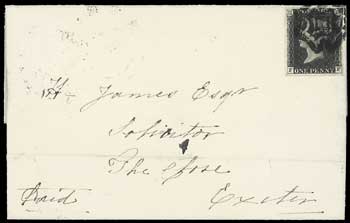 ONE PENNY
H- James Esqr
Solicitor
The Close
Paid
Exeter